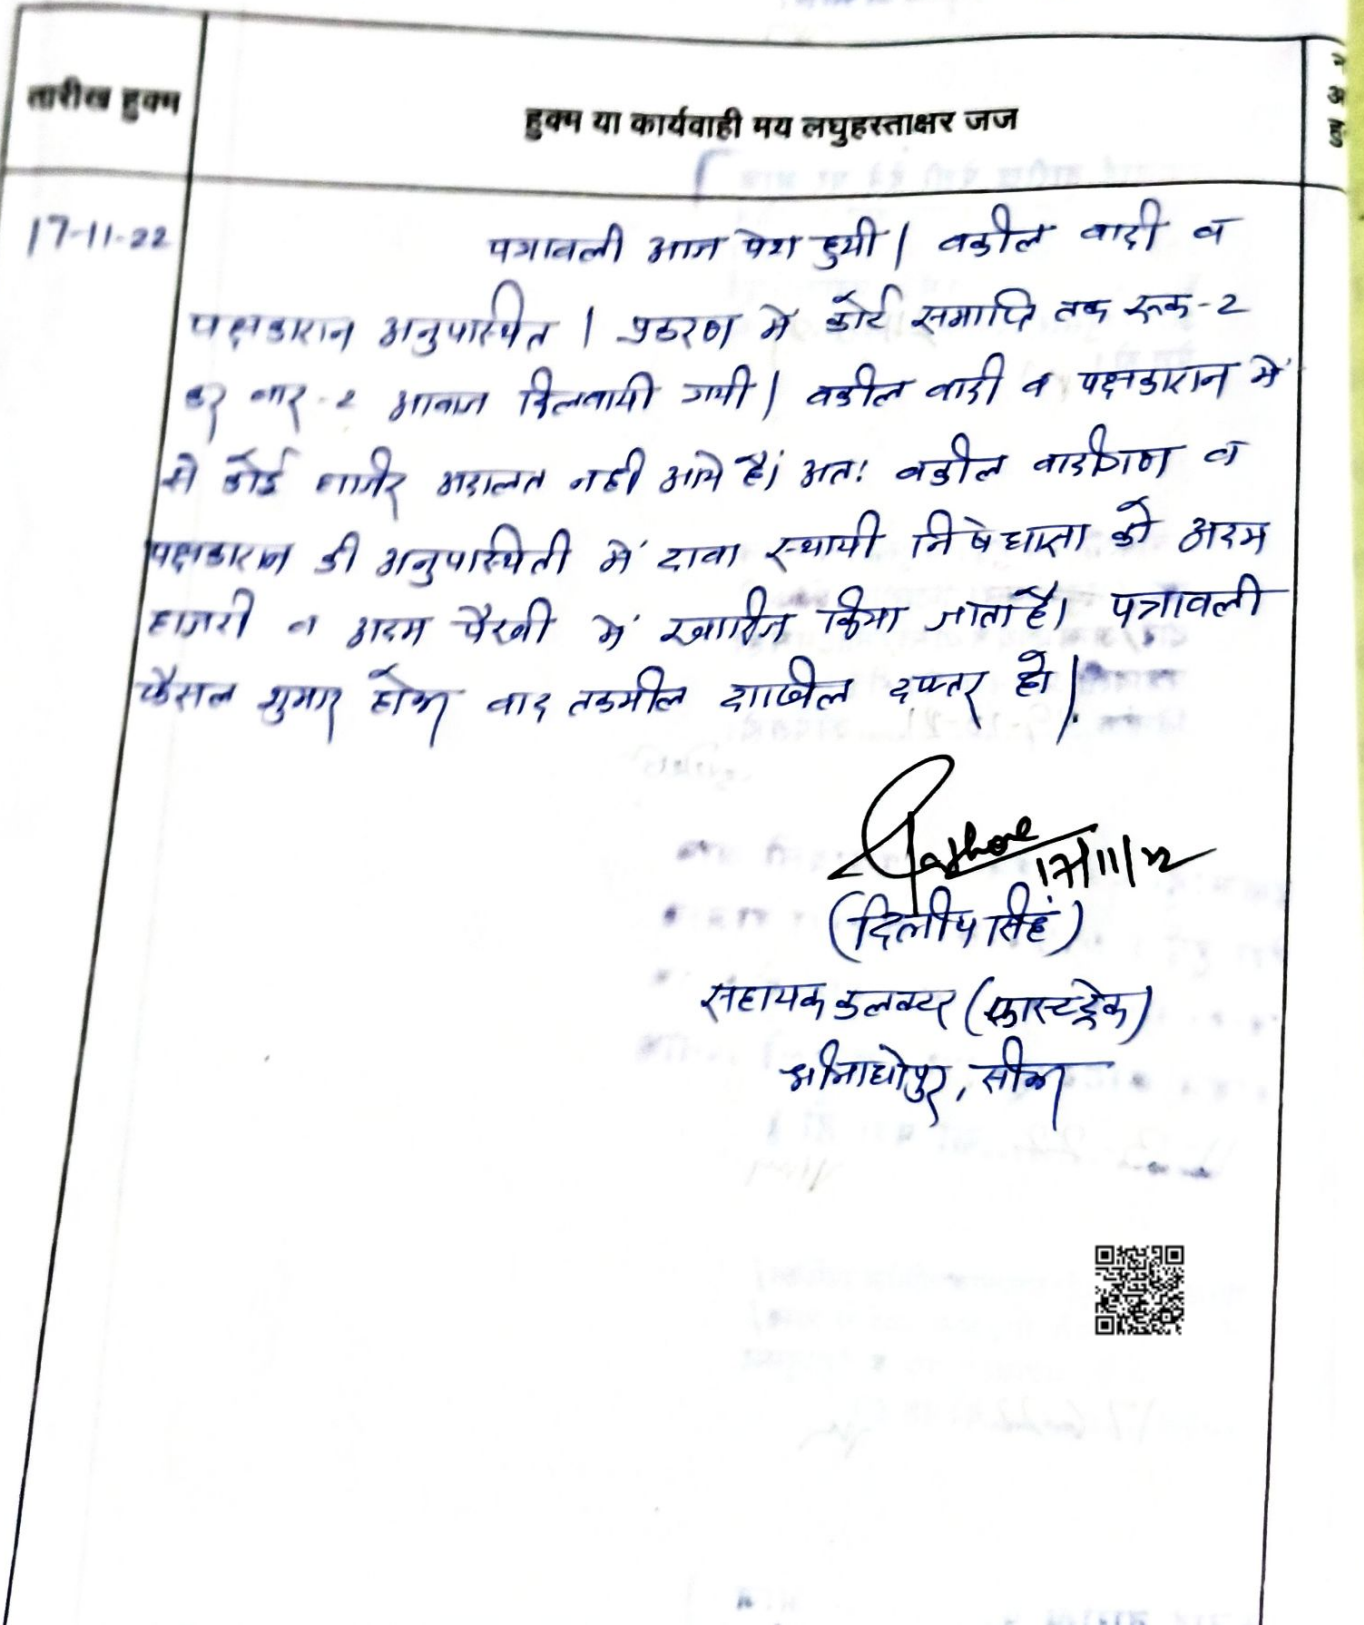 तारीख हुक्म
हुक्म या कार्यवाही मय लघुहस्ताक्षर जज
17-11-22
पत्रावली आज पेश हुयी। वकील वादी व
पक्षकारान अनुपस्थित। प्रकरण में कोर्ट समाप्ति तक रूक-2
कर बार-2 आवाज दिलवायी गयी। वकील वादी व पक्षकारान में
से कोई हाजिर अदालत नही आये है। अतः वकील वादीगण व
पक्षकारान की अनुपस्थिती में दावा स्थायी निषेधाज्ञा को अदम
हाजरी व अदम पैरवी में खारिज किया जाता है। पत्रावली
फैसल शुमार होकर बाद तकमील दाखिल दफ्तर हो।
17/11/22
(दिलीप सिंह)
सहायक कलक्टर (फास्टट्रेक)
श्रीमाधोपुर, सीकर